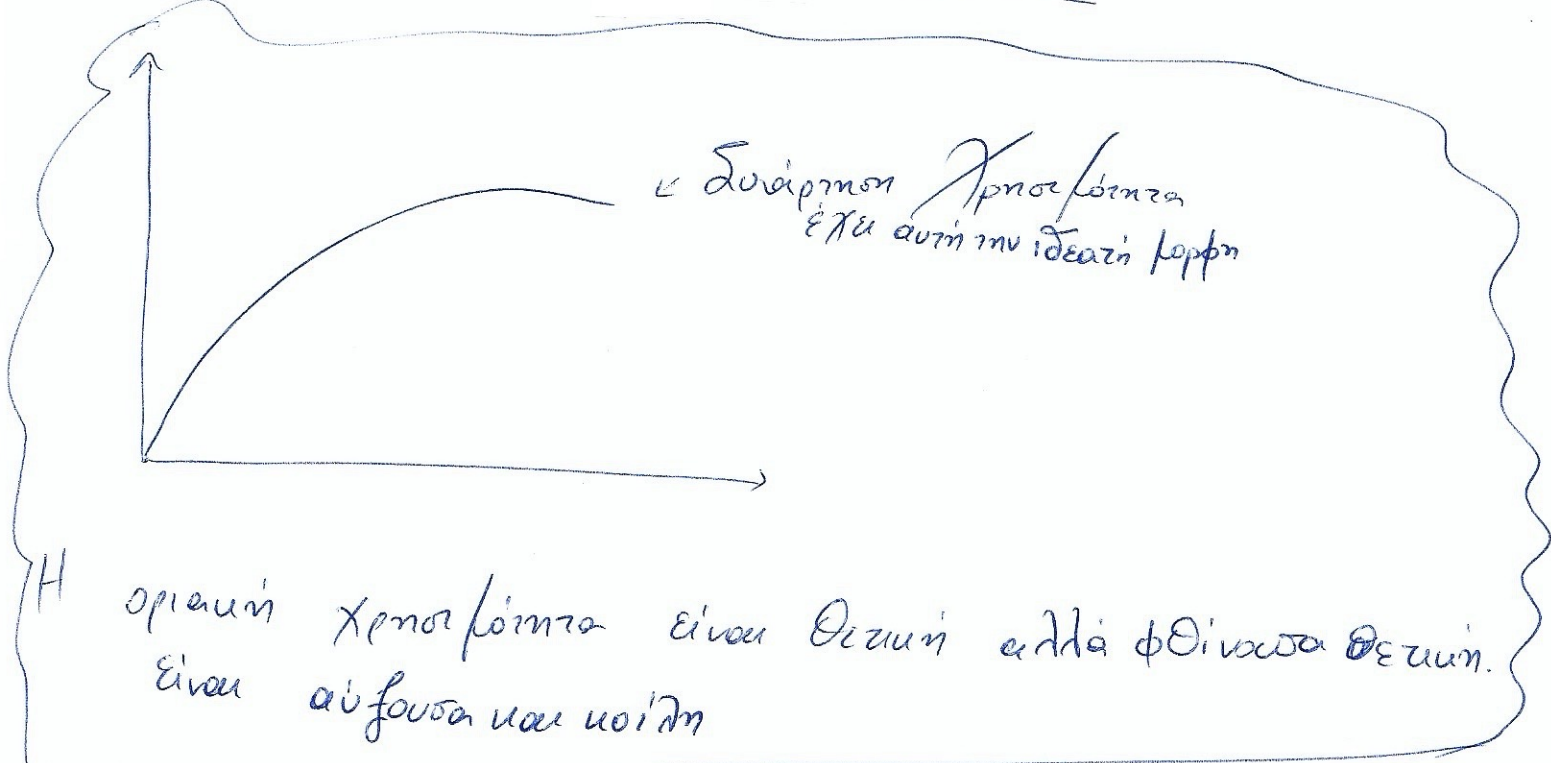 Συνάρτηση Χρησιμότητα
έχει αυτή την ιδεατή μορφη
Η οριακή χρησιμότητα είναι θετική αλλά φθίνουσα θετική.
Είναι αύξουσα και κοίλη